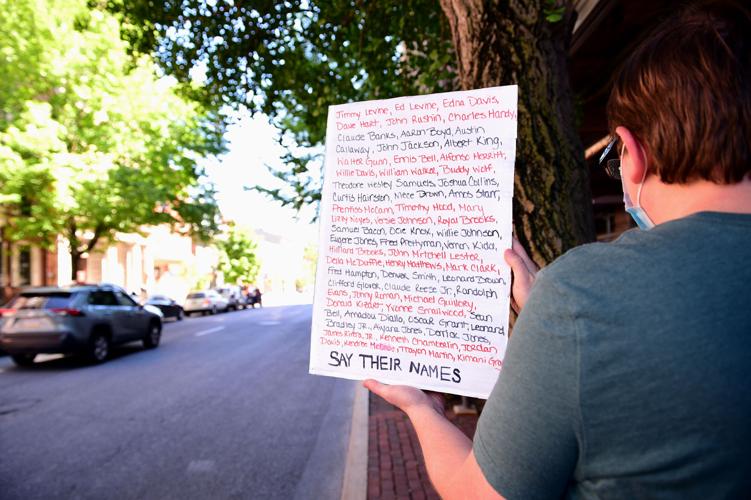 Jimmy Levine, Ed Levine, Edna Davis,
Dave Hart, John Rushin, Charles Handy,
Claude Banks, Aaron Boyd, Austin
Callaway, John Jackson, Albert King,
Walter Gunn, Ennis Bell, Alfonso Merritt,
Willie Davis, William Walker, Buddy Wolf,
Theodore Wesley Samuels, Joshua Collins,
Curtis Hairston, Niece Brown, Amos Starr,
Prentiss McCann, Timothy Hood, Mary
Noyes, Versie Johnson, Royal Brooks,
Samuel Bacon, Dixie Knox, Willie Johnson,
Eugene Jones, Fred Prettyman, Vernen Kidd,
Hilliard Brooks, John Mitchell Lester,
Della McDuffie, Henry Matthews, Mark Clark,
Fred Hampton, Denver Smith, Leonard Brown,
Clifford Glover, Claude Reese Jr, Randolph
Evans, Jenny Roman, Michael Guillory,
Donald Kizart, Yvonne Smallwood, Sean
Bell, Amadou Diallo, Oscar Grant, Leonard
Bradley Jr., Aiyana Jones, Derrick Jones,
James Rivera, Jr., Kenneth Chamberlin, Jordan
Davis, Kendrec Trayvon Martin, Kimani Gray
SAY THEIR NAMES